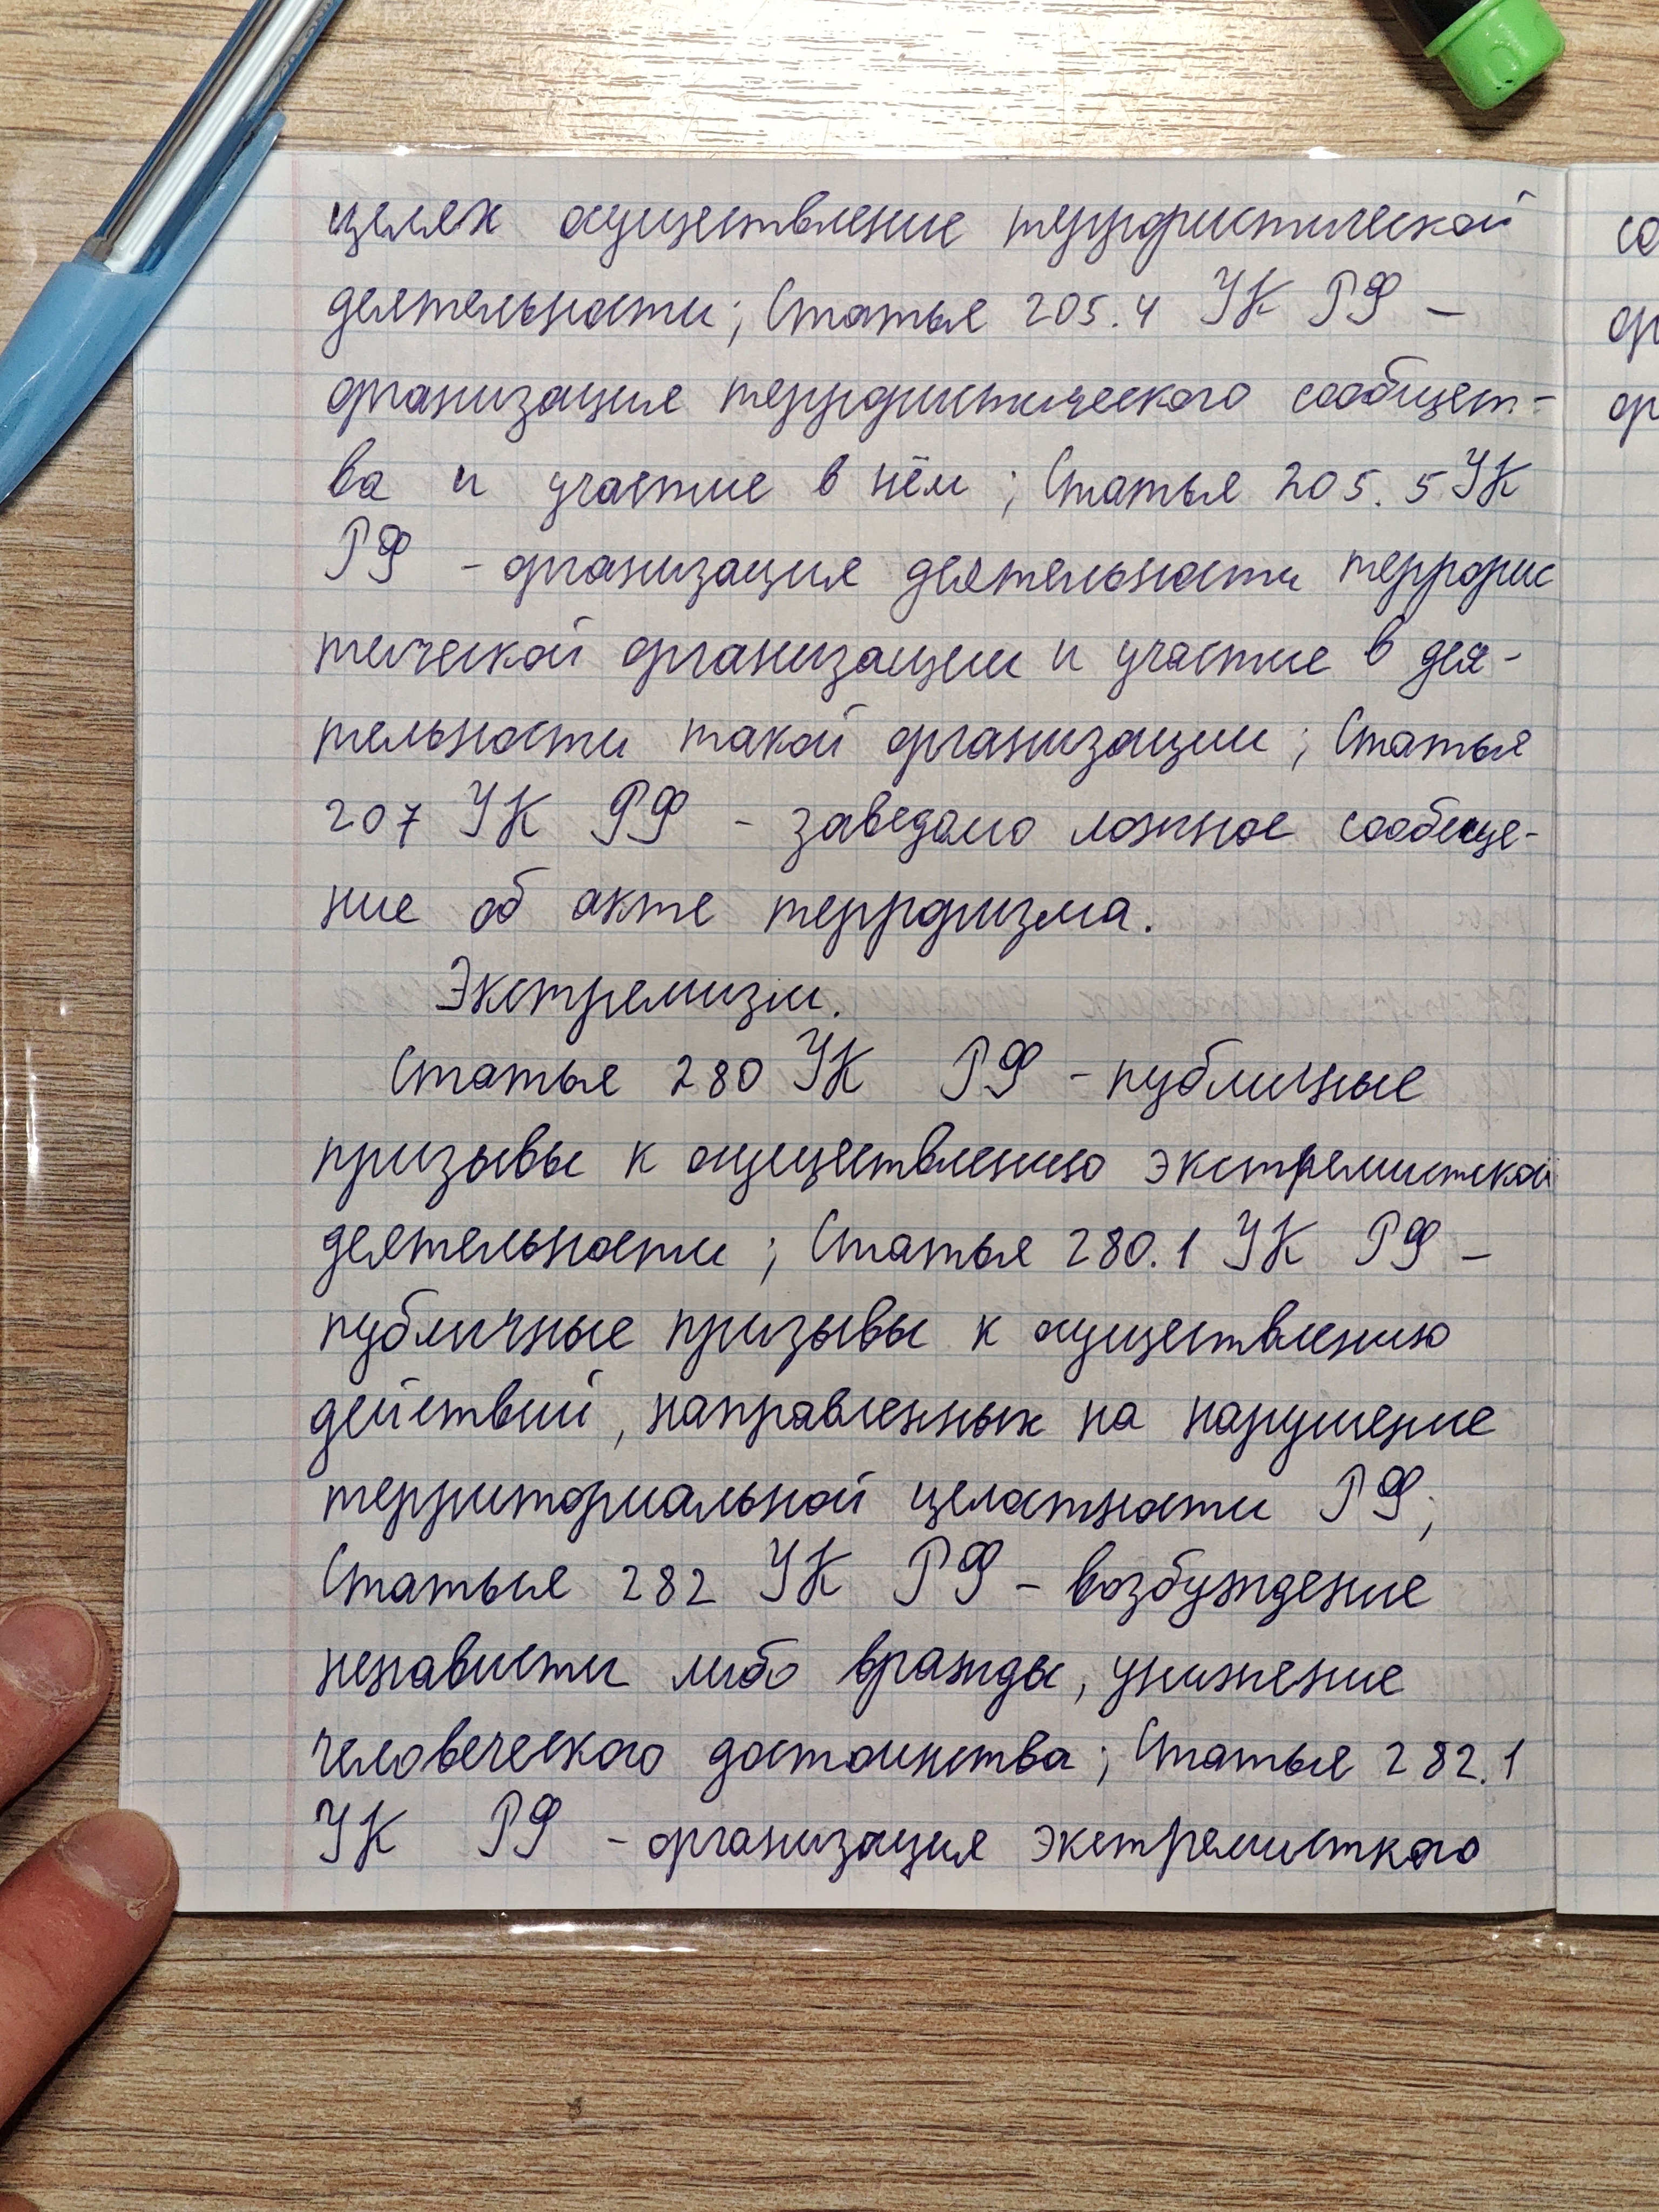 целях осуществление террористической
деятельности; Статья 205.4 УК РФ –
организация террористического сообщест-
ва и участие в нём; Статья 205.5 УК
РФ – организация деятельности террорис
тической организации и участие в дея-
тельности такой организации; Статья
207 УК РФ – заведомо ложное сообще-
ние об акте терроризма.
Экстремизм.
Статья 280 УК РФ – публичные
призывы к осуществлению экстремистской
деятельности; Статья 280.1 УК РФ –
публичные призывы к осуществлению
действий, направленных на нарушение
территориальной целостности РФ;
Статья 282 УК РФ – возбуждение
ненависти либо вражды, унижение
человеческого достоинства; Статья 282.1
УК РФ – организация экстремисткого
со
ор
ор